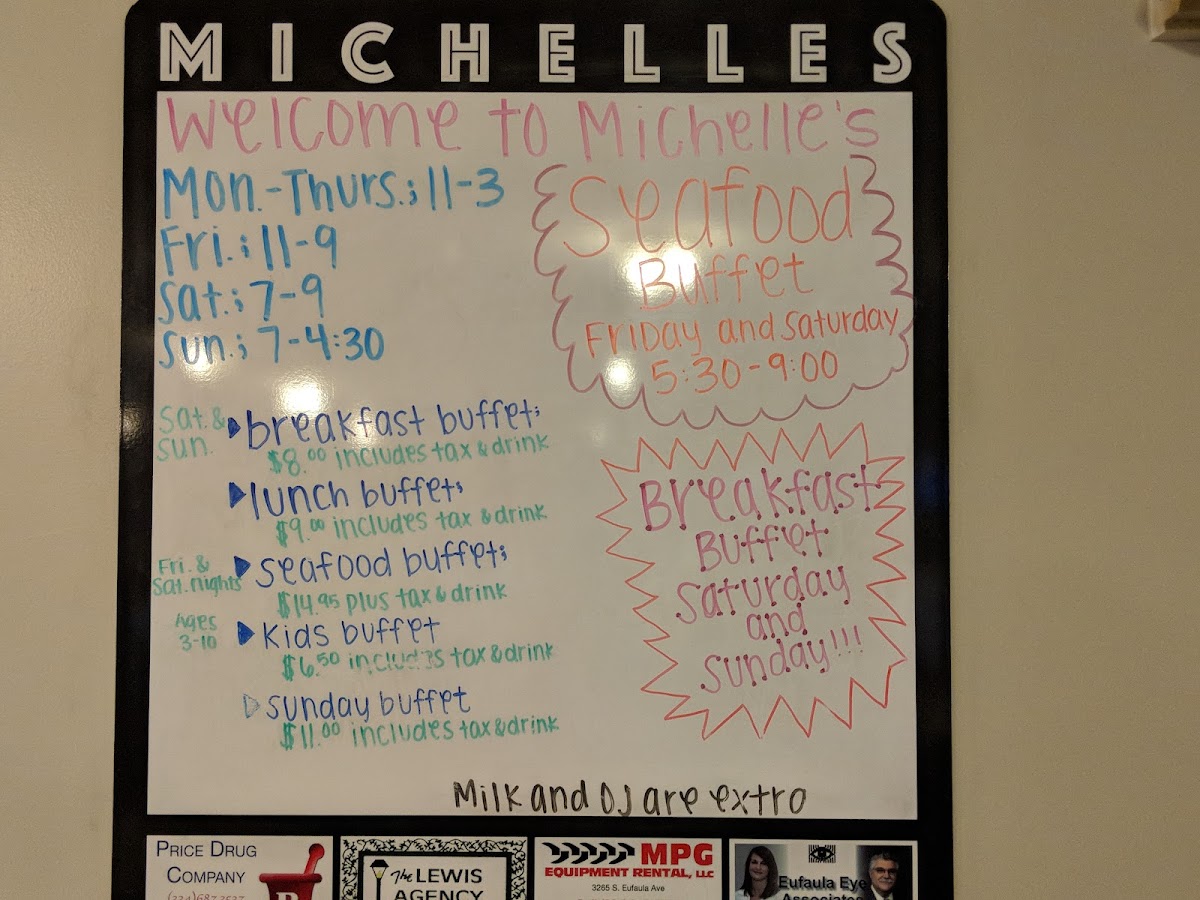 MICHELLES
Welcome to Michelle's
Mon.-Thurs.; 11-3
Fri.; 11-9
Sat.; 7-9
Sun.; 7-4:30
Seafood
Buffet
Friday and Saturday
5:30-9:00
Sat. &
Sun.
breakfast buffet;
$8.00 includes tax & drink
lunch buffet;
$9.00 includes tax & drink
Fri. &
Sat. nights
seafood buffet;
$14.95 plus tax & drink
Ages
3-10
Kids buffet
$6.50 includes tax & drink
sunday buffet
$11.00 includes tax & drink
Breakfast
Buffet
Saturday
and
Sunday!!!
Milk and OJ are extro
PRICE DRUG
COMPANY
(334)687-3527
The LEWIS
AGENCY
MPG
EQUIPMENT RENTAL, LLC
3265 S. Eufaula Ave
Eufaula Eye
Associates